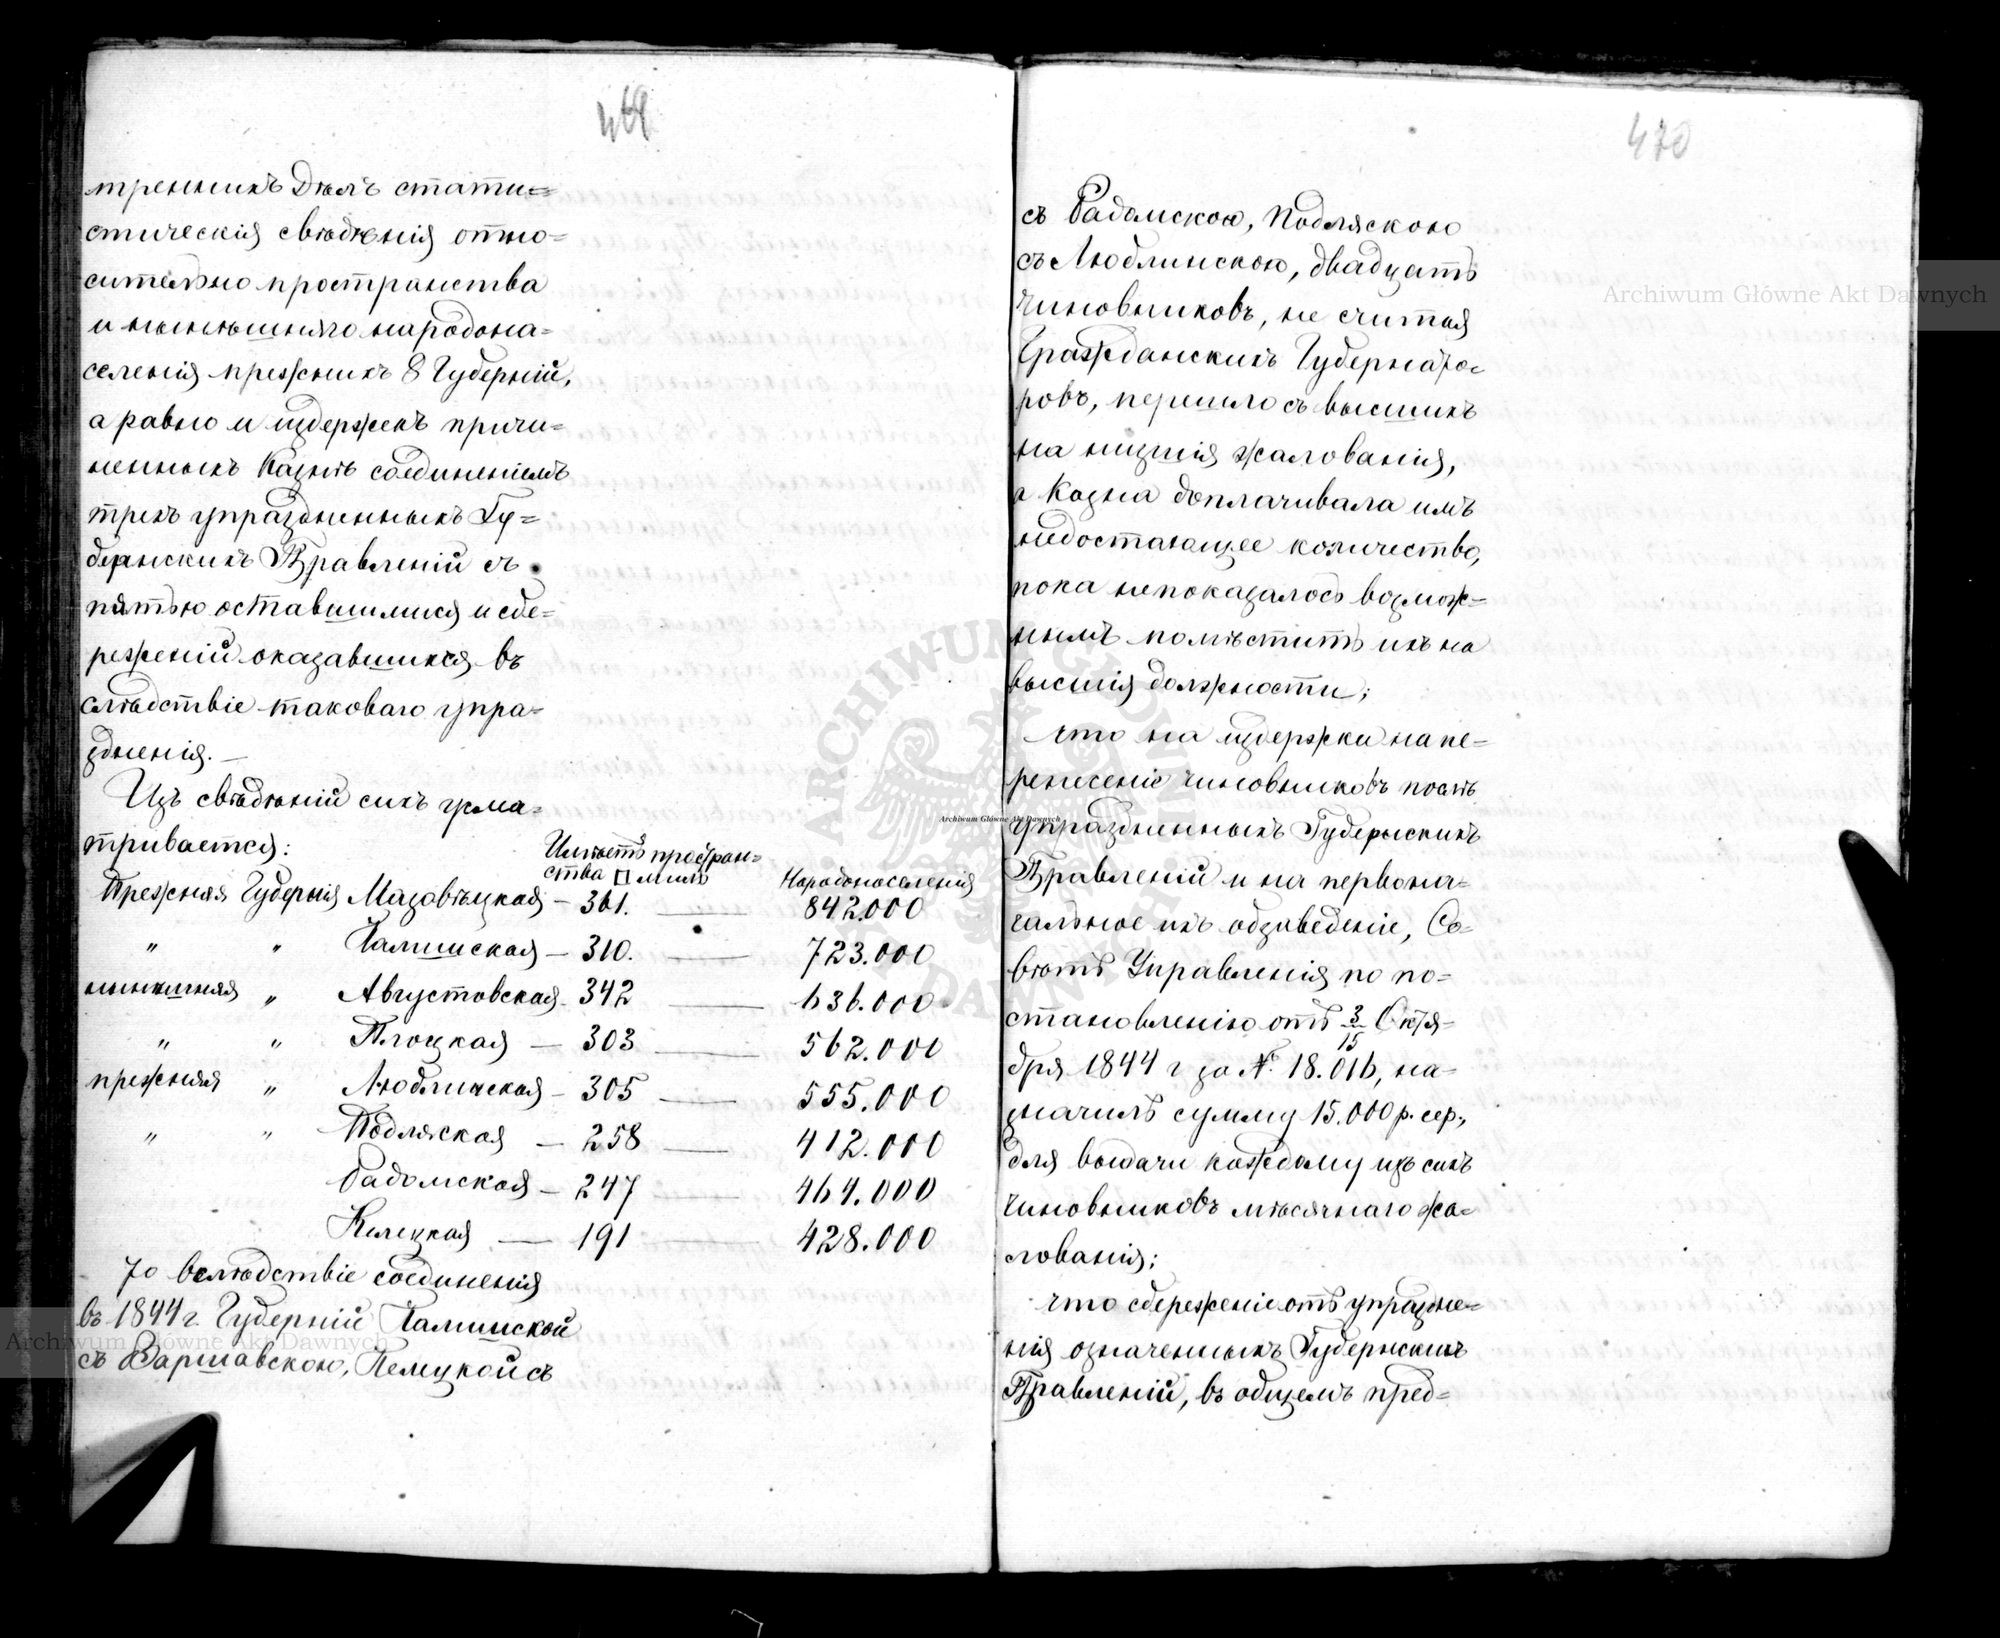 469
тренникъ Дѣлъ стати=
стическія свѣдѣнія отно=
сительно пространства
и нынѣшняго народона=
селенія прежнихъ 8 Губерній,
а равно и издержекъ причи=
ненныхъ Казнѣ соединеніемъ
трехъ упраздненныхъ Гу=
бернскихъ Правленій съ
пятью оставшимися и сбе=
реженій оказавшихся въ
слѣдствіе таковаго упра=
здненія. —
Изъ свѣдѣній сихъ усма=
тривается:
Имѣетъ простран=
ства □ миль
Народонаселенія
Прежняя Губернія Мазовѣцкая — 361. — 842.000
" " Калишская — 310. — 723.000
нынѣшняя " Августовская — 342 — 636.000
" " Плоцкая — 303 — 562.000
прежняя " Люблинская — 305 — 555.000
" " Подляская — 258 — 412.000
Радомская — 247 — 464.000
Келецкая — 191 — 428.000
въ 1844 г. Губерній Калишской
съ Варшавскою, Келецкой съ
470
съ Радомскою, Подляскою
съ Люблинскою, двадцать
Чиновниковъ, не считая
Гражданскихъ Губернато=
ровъ, перешло съ высшихъ
на низшія жалованія,
а Казна доплачивала имъ
недостающее количество,
пока непоказалось возмож=
нымъ помѣстить ихъ на
высшія должности;
что на издержки на пе=
ренесеніе чиновниковъ послѣ
упраздненныхъ Губернскихъ
Правленій и на первона=
чальное ихъ обзаведеніе, Со=
вѣтъ Управленія по по=
становленію отъ 3/15 Октя=
бря 1844 г за № 18.016, на=
значилъ сумму 15.000 р. сер.,
для выдачи каждому изъ сихъ
чиновниковъ мѣсячнаго жа=
лованія;
что сбереженіе отъ упраздне=
нія означенныхъ Губернскихъ
Правленій, въ общемъ пред=
Archiwum Główne Akt Dawnych
Archiwum Główne Akt Dawnych
Archiwum Główne Akt Dawnych